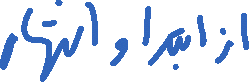 از ابتدا و انتها